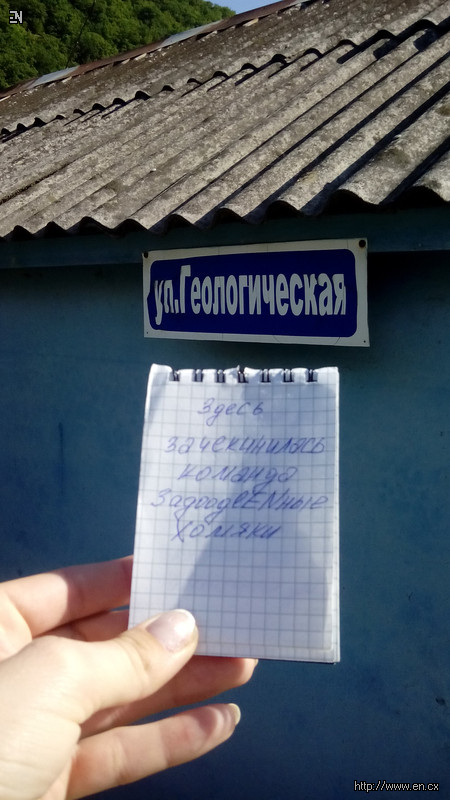 EN
ул.Геологическая
здесь
зачекинилась
команда
ЗадоадSENные
хомяки
http://www.en.cx